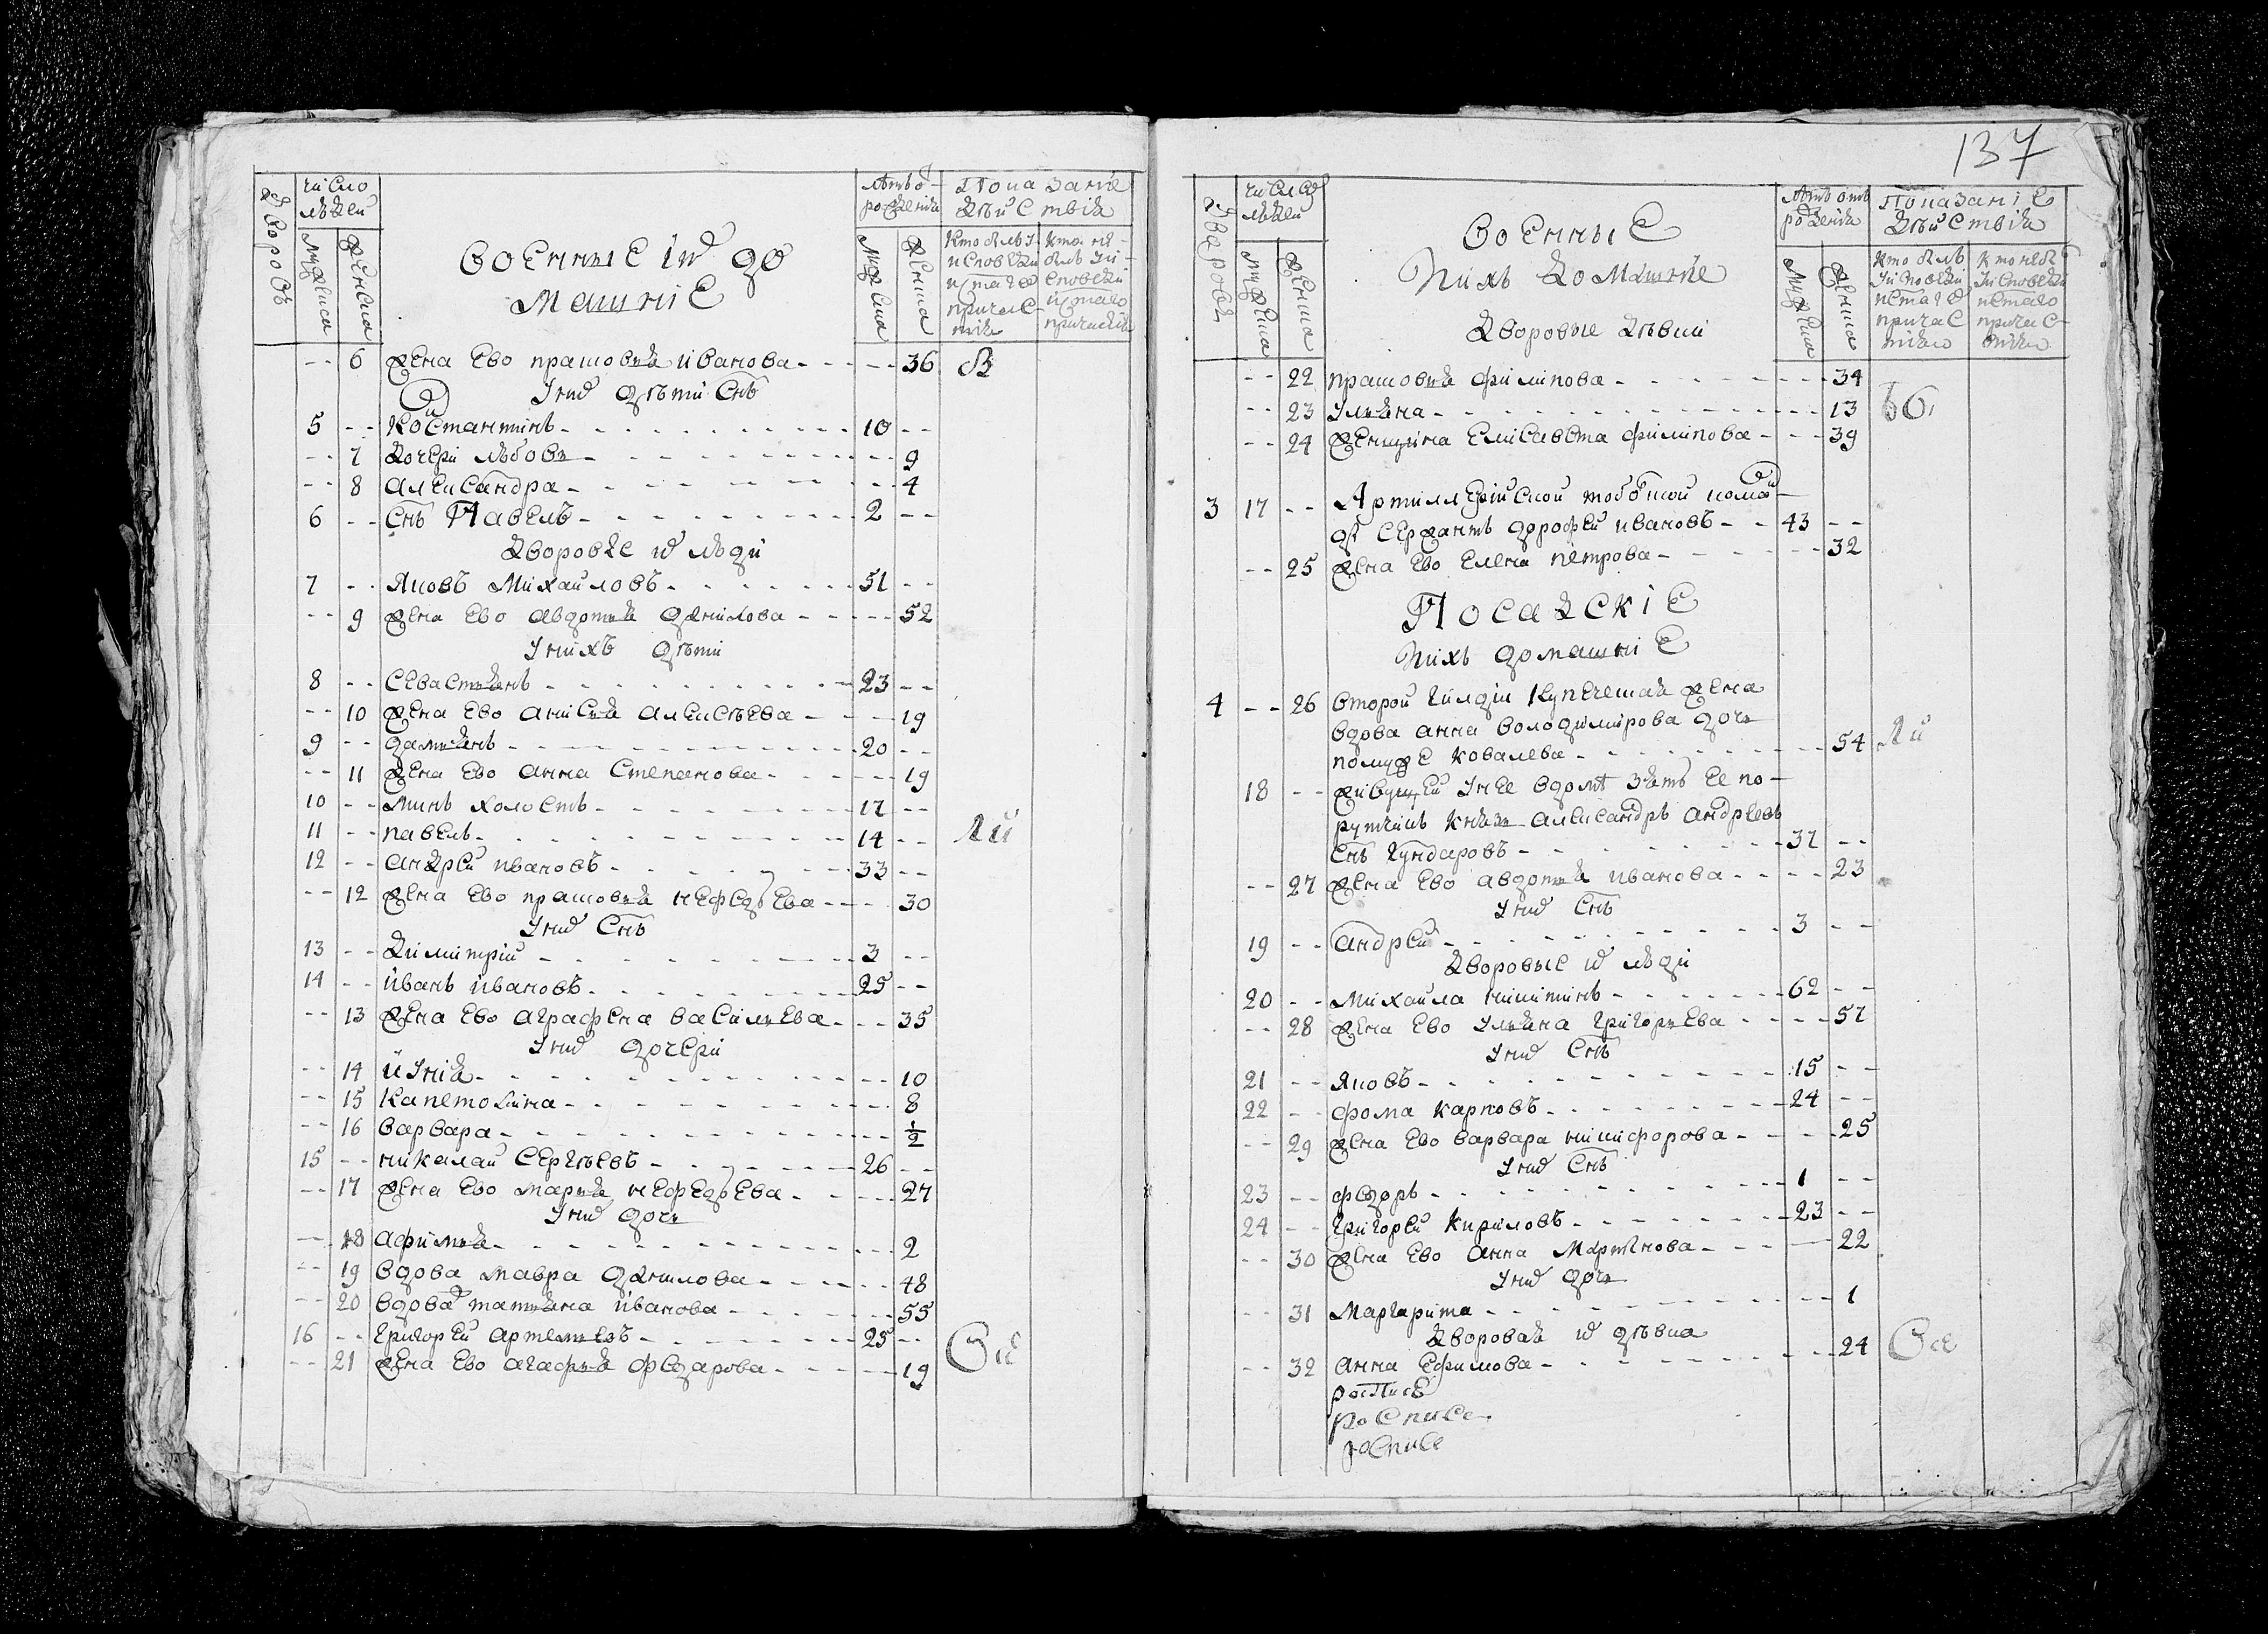 дворовъ
число людей
мужеска
женска
военные их до
машние
лѣтъ о рожденiя
мужеска
женска
Показание дѣйствiя
Кто былъ у исповѣди и с̃таго причастiя
Кто не былъ у исповѣди и с̃таго причастiя
-- 6 жена ево прасковья иванова -- 36
У них дѣти сн̃ъ
5 -- Костантинъ 10 --
-- 7 дочери любовь -- 9
-- 8 александра -- 4
6 -- сн̃ъ Павелъ 2 --
дворовые их люди
7 -- Яковъ Михаиловъ 51 --
-- 9 жена ево авдотья данилова -- 52
У нихъ дѣти
8 -- севастьянъ 23 --
-- 10 жена ево анисья алексѣева -- 19
9 -- дамьянъ 20 --
-- 11 жена ево анна степанова -- 19
10 -- минъ холостъ 17 --
11 -- павелъ 14 --
12 -- андрей ивановъ 33 --
-- 12 жена ево прасковья нефедьева -- 30
У них сн̃ъ
13 -- димитрiй 3 --
14 -- иванъ ивановъ 25 --
-- 13 жена ево аграфена васильева -- 35
У них дочери
-- 14 иунiя -- 10
-- 15 капетолина -- 8
-- 16 варвара -- 1/2
15 -- никалай сергѣевъ 26 --
-- 17 жена ево марья нефедьева -- 27
У них дочь
-- 18 афимья -- 2
-- 19 вдова мавра данилова -- 48
-- 20 вдова татьяна иванова -- 55
16 -- григорей артемьевъ 25 --
-- 21 жена ево агафья федарова -- 19
137
дворовъ
число людей
мужеска
женска
военные
и ихъ домашнiе
дворовые дѣвки
лѣтъ отъ рожденiя
мужеска
женска
Показанiе дѣйствiя
кто былъ у исповѣди и с̃таго причастiя
кто не былъ у исповѣди и с̃таго причастiя
-- 22 прасковья филипова -- 34
-- 23 ульяна -- 13
-- 24 женщина елисавета филипова -- 39
3 17 -- Артиллерiйской
сержантъ дорофей ивановъ 43 --
-- 25 жена ево елена петрова -- 32
Посадскiе
и ихъ домашнiе
4 -- 26 второй гилдiи купеческая жена
вдова анна володимирова дочь
по муже ковалева -- 54
18 -- живущей у нее в доме зять ее по-
рутчикъ князь александръ андреевъ
сн̃ъ гундаровъ 37 --
-- 27 жена ево авдотья иванова -- 23
У них сн̃ъ
19 -- андрей 3 --
дворовые их люди
20 -- Михаила никитинъ 62 --
-- 28 жена ево ульяна григорьева -- 57
У них сн̃ъ
21 -- Яковъ 15 --
22 -- фома карповъ 24 --
-- 29 жена ево варвара никифорова -- 25
У них сн̃ъ
23 -- федоръ 1 --
24 -- григорей кириловъ 23 --
-- 30 жена ево анна Мартынова -- 22
У них дочь
-- 31 Маргарита -- 1
дворовая их дѣвка
-- 32 анна ефимова -- 24
росписе
росписе
росписе